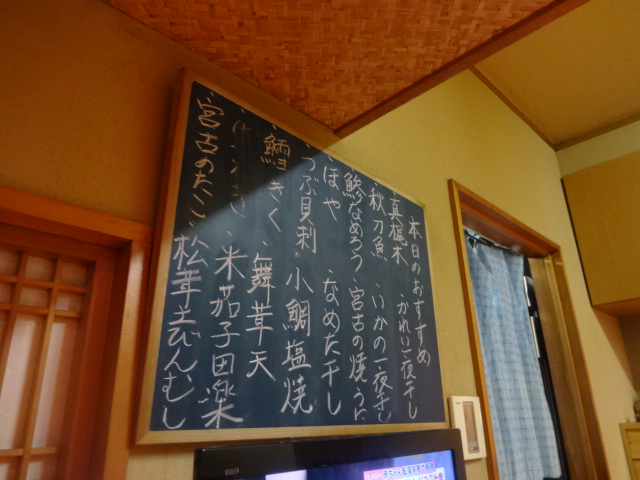 本日のおすすめ
・真梶木 ・かれい一夜干し
・秋刀魚 ・いかの一夜干し
・鯵なめろう ・宮古の焼うに
・ほや ・なめた干し
・つぶ貝刺 ・小鯛塩焼
・鱈きく ・舞茸天
・米茄子田楽
・宮古のたこ ・松茸土びんむし
VIZIO